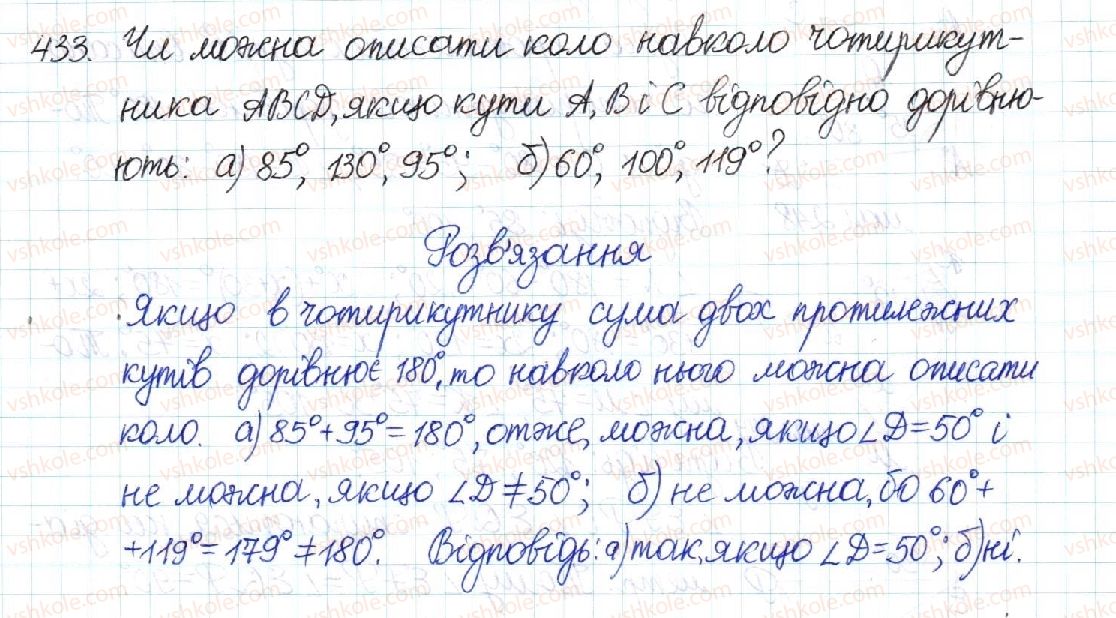 433. Чи можна описати коло навколо чотирикут-
ника ABCD, якщо кути A, B і C відповідно дорівню-
ють: а) 85°, 130°, 95°; б) 60°, 100°, 119°?
Розв'язання
Якщо в чотирикутнику сума двох протилежних
кутів дорівнює 180°, то навколо нього можна описати
коло. а) 85°+95°=180°, отже, можна, якщо ∠D=50° і
не можна, якщо ∠D≠50°; б) не можна, бо 60°+
+119°=179°≠180°. Відповідь: а) так, якщо ∠D=50°; б) ні.